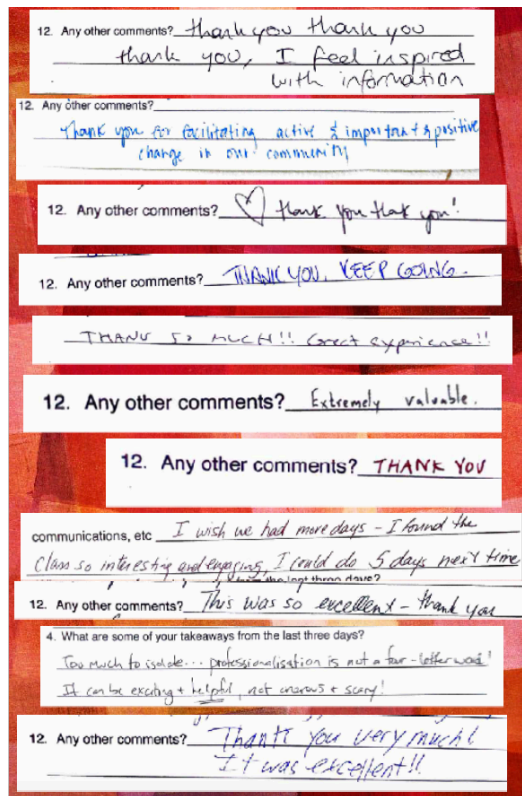 12. Any other comments? thank you thank you
thank you, I feel inspired
with information
12. Any other comments?
Thank you for facilitating active & important & positive
change in our community
12. Any other comments? thank you thak you!
12. Any other comments? THANK YOU, KEEP GOING.
THANK SO MUCH!! Great experience!!
12. Any other comments? Extremely valuable.
12. Any other comments? THANK YOU
communications, etc I wish we had more days - I found the
class so interesting and engaging, I could do 5 days next time
the last three days?
12. Any other comments? This was so excellent - thank you
4. What are some of your takeaways from the last three days?
Too much to isolate... professionalisation is not a four-letter word!
It can be exciting + helpful, not onerous + scary!
12. Any other comments? Thank you very much!
It was excellent!!